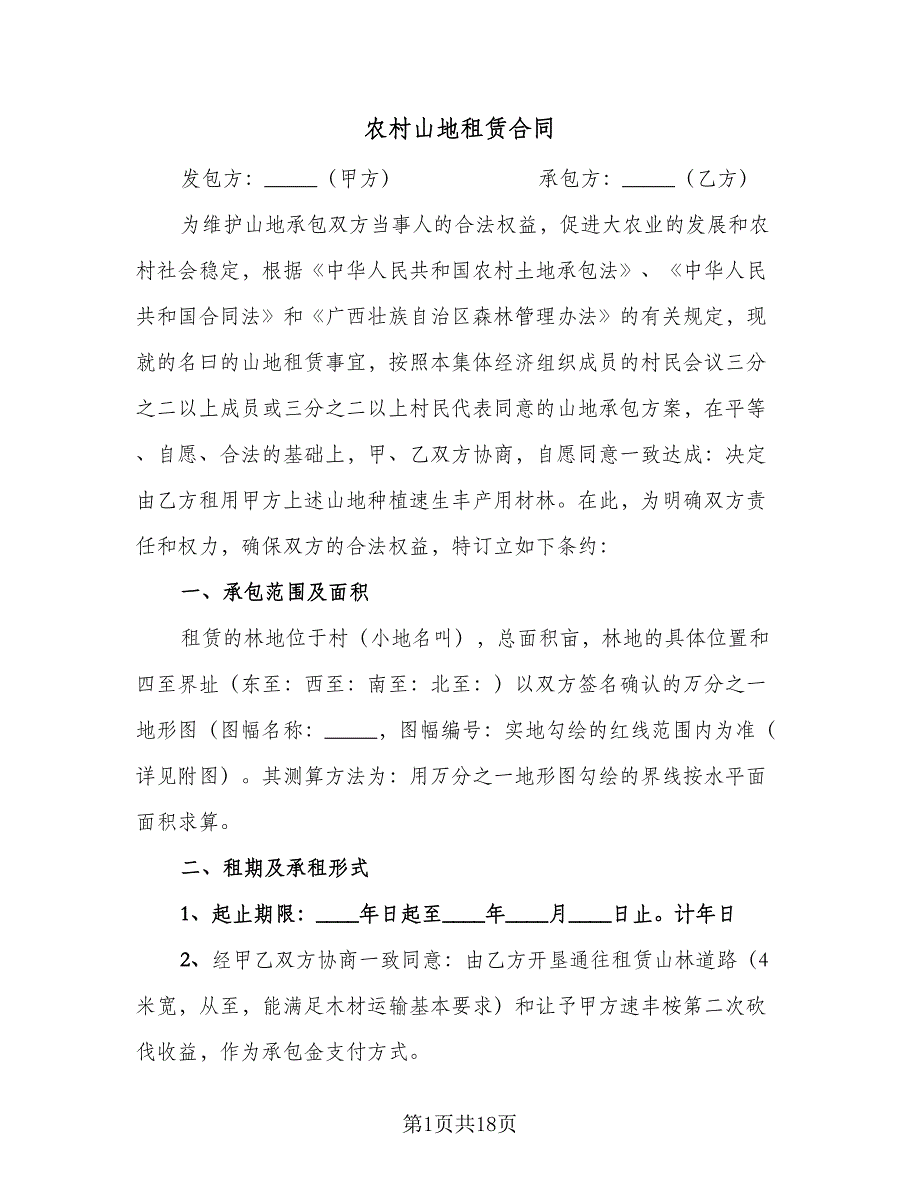 农村山地租赁合同
发包方：_____（甲方） 承包方：_____（乙方）
为维护山地承包双方当事人的合法权益，促进大农业的发展和农
村社会稳定，根据《中华人民共和国农村土地承包法》、《中华人民
共和国合同法》和《广西壮族自治区森林管理办法》的有关规定，现
就的名曰的山地租赁事宜，按照本集体经济组织成员的村民会议三分
之二以上成员或三分之二以上村民代表同意的山地承包方案，在平等
、自愿、合法的基础上，甲、乙双方协商，自愿同意一致达成：决定
由乙方租用甲方上述山地种植速生丰产用材林。在此，为明确双方责
任和权力，确保双方的合法权益，特订立如下条约：
一、承包范围及面积
租赁的林地位于村（小地名叫），总面积亩，林地的具体位置和
四至界址（东至：西至：南至：北至：）以双方签名确认的万分之一
地形图（图幅名称：_____，图幅编号：实地勾绘的红线范围内为准（
详见附图）。其测算方法为：用万分之一地形图勾绘的界线按水平面
面积求算。
二、租期及承租形式
1、起止期限：____年日起至____年____月____日止。计年日
2、经甲乙双方协商一致同意：由乙方开垦通往租赁山林道路（4
米宽，从至，能满足木材运输基本要求）和让予甲方速丰桉第二次砍
伐收益，作为承包金支付方式。
第1页共18页